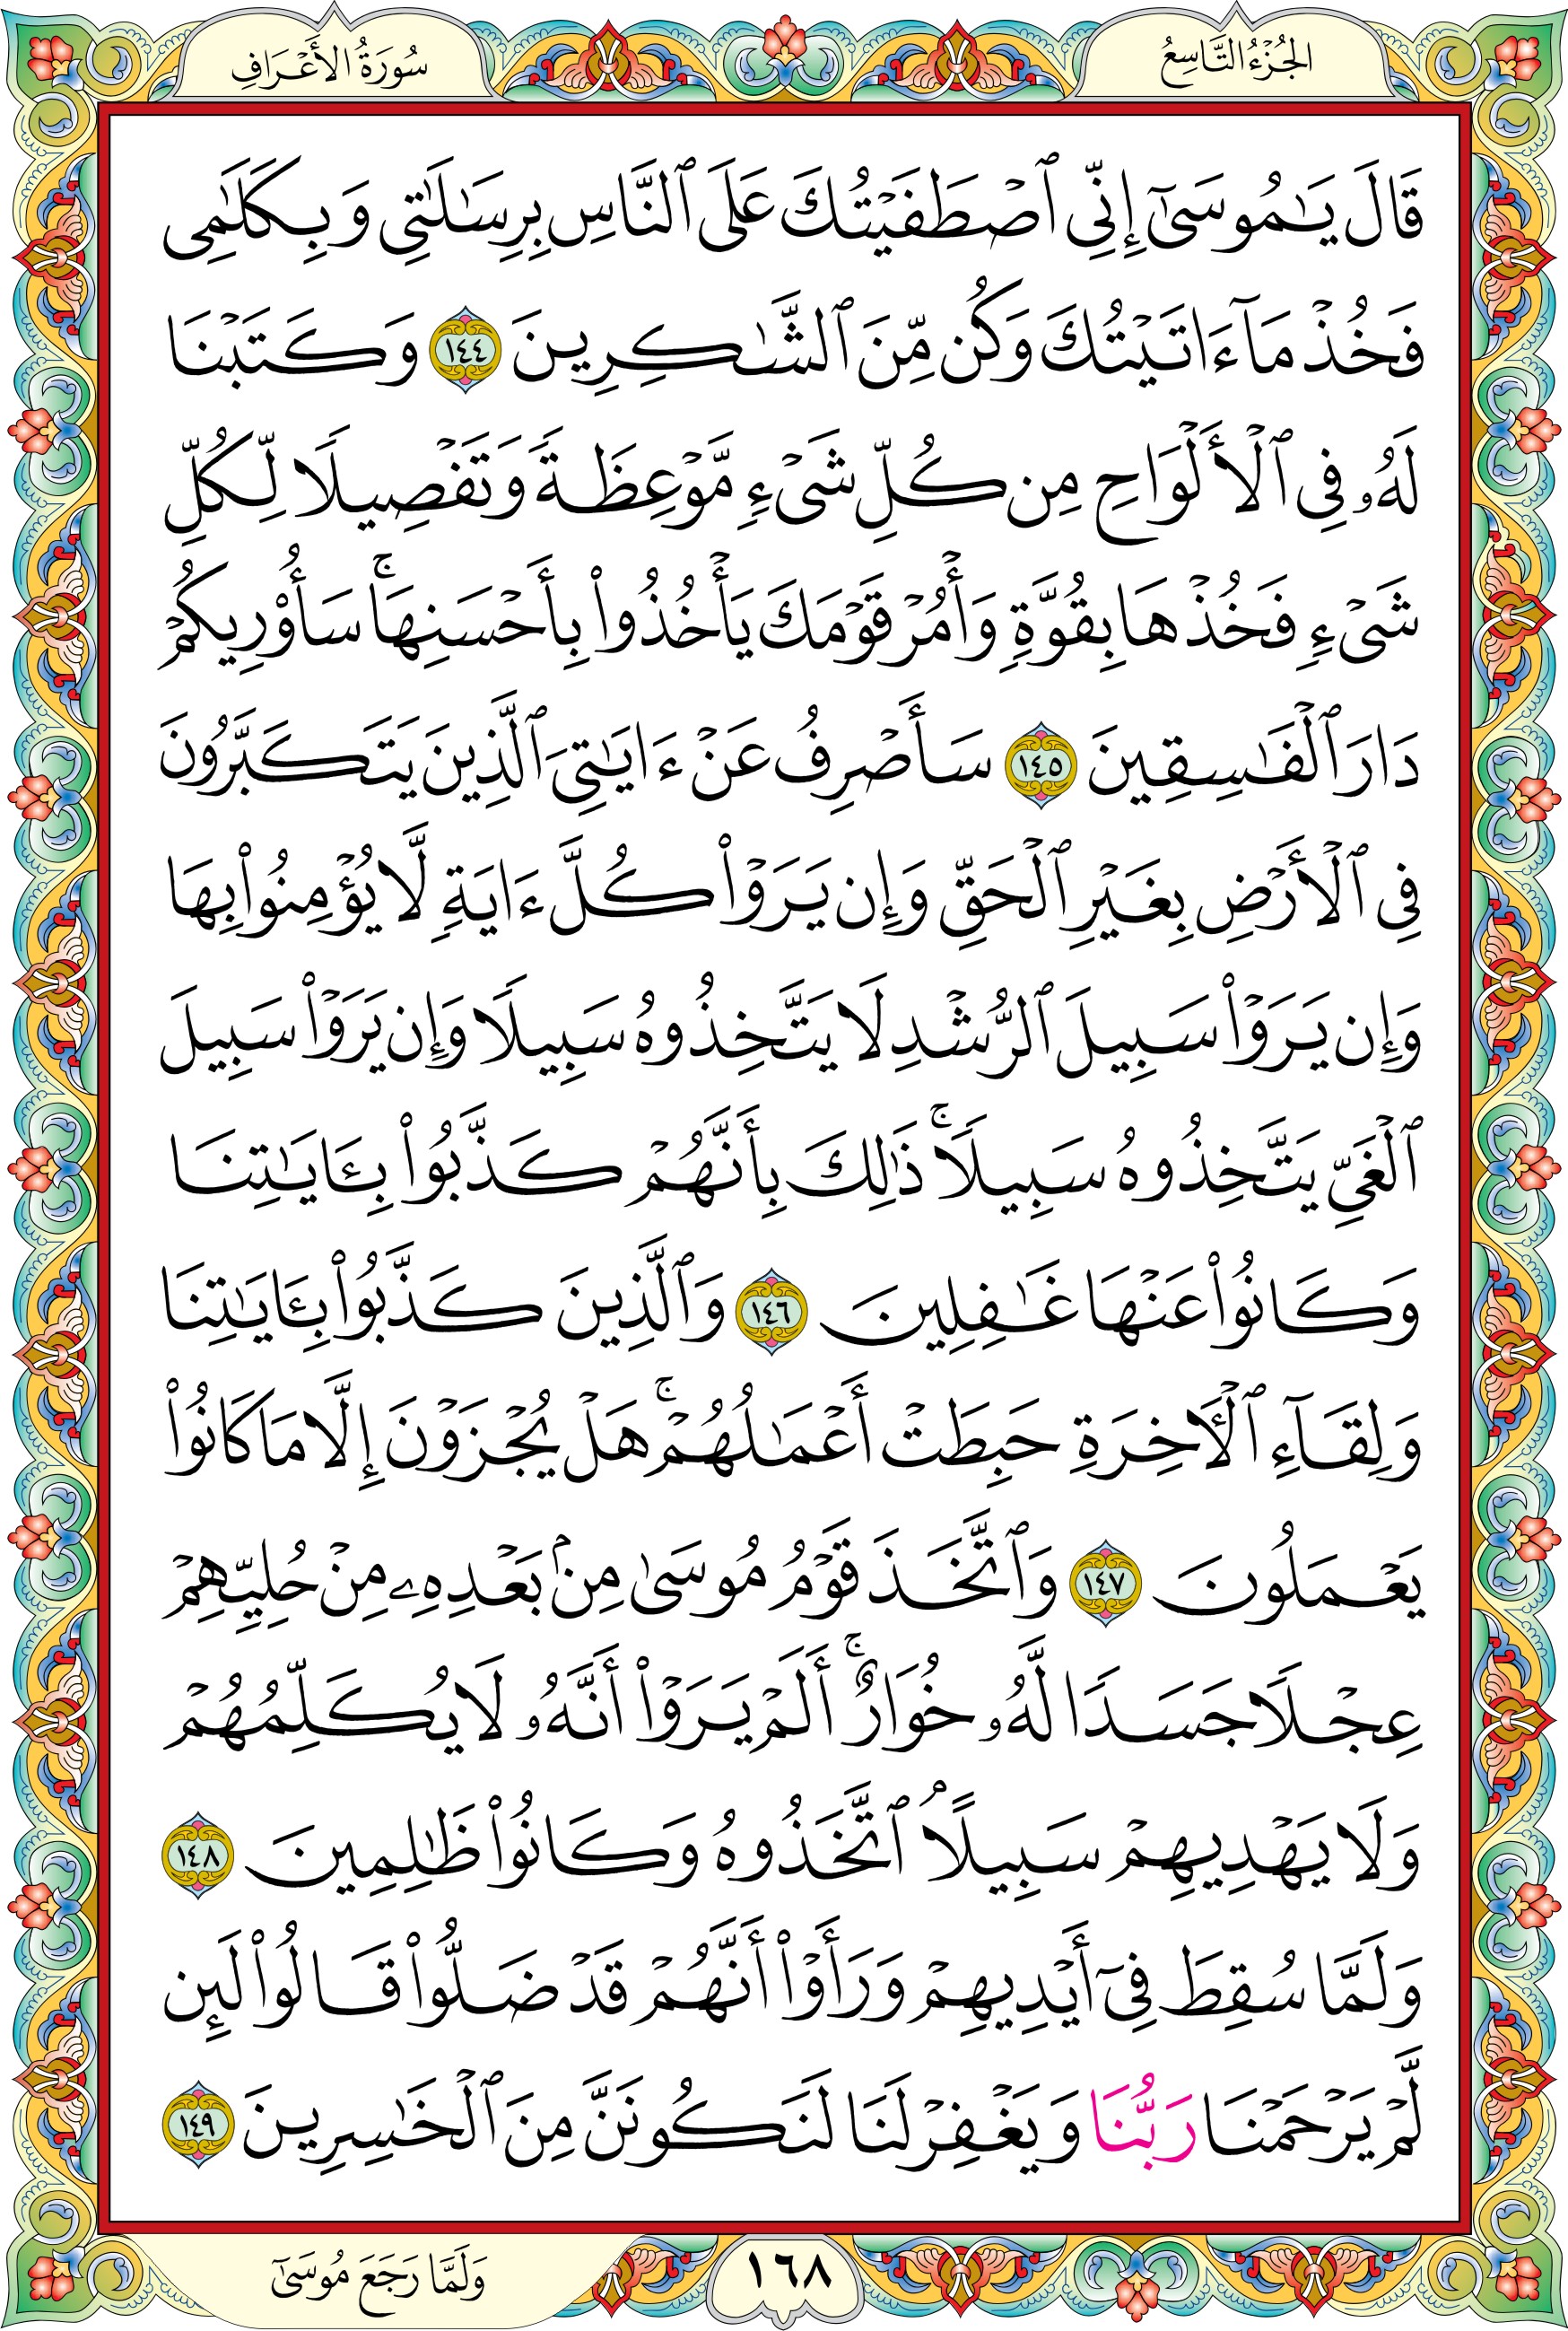 الجُزْءُ التَّاسِعُ
سُورَةُ الأَعْرَافِ
قَالَ يَـٰمُوسَىٰٓ إِنِّى ٱصْطَفَيْتُكَ عَلَى ٱلنَّاسِ بِرِسَـٰلَـٰتِى وَبِكَلَـٰمِى
فَخُذْ مَآ ءَاتَيْتُكَ وَكُن مِّنَ ٱلشَّـٰكِرِينَ ١٤٤ وَكَتَبْنَا
لَهُۥ فِى ٱلْأَلْوَاحِ مِن كُلِّ شَىْءٍ مَّوْعِظَةً وَتَفْصِيلًا لِّكُلِّ
شَىْءٍ فَخُذْهَا بِقُوَّةٍ وَأْمُرْ قَوْمَكَ يَأْخُذُوا۟ بِأَحْسَنِهَا ۚ سَأُو۟رِيكُمْ
دَارَ ٱلْفَـٰسِقِينَ ١٤٥ سَأَصْرِفُ عَنْ ءَايَـٰتِىَ ٱلَّذِينَ يَتَكَبَّرُونَ
فِى ٱلْأَرْضِ بِغَيْرِ ٱلْحَقِّ وَإِن يَرَوْا۟ كُلَّ ءَايَةٍ لَّا يُؤْمِنُوا۟ بِهَا
وَإِن يَرَوْا۟ سَبِيلَ ٱلرُّشْدِ لَا يَتَّخِذُوهُ سَبِيلًا وَإِن يَرَوْا۟ سَبِيلَ
ٱلْغَىِّ يَتَّخِذُوهُ سَبِيلًا ۚ ذَٰلِكَ بِأَنَّهُمْ كَذَّبُوا۟ بِـَٔايَـٰتِنَا
وَكَانُوا۟ عَنْهَا غَـٰفِلِينَ ١٤٦ وَٱلَّذِينَ كَذَّبُوا۟ بِـَٔايَـٰتِنَا
وَلِقَآءِ ٱلْـَٔاخِرَةِ حَبِطَتْ أَعْمَـٰلُهُمْ ۚ هَلْ يُجْزَوْنَ إِلَّا مَا كَانُوا۟
يَعْمَلُونَ ١٤٧ وَٱتَّخَذَ قَوْمُ مُوسَىٰ مِنۢ بَعْدِهِۦ مِنْ حُلِيِّهِمْ
عِجْلًا جَسَدًا لَّهُۥ خُوَارٌ ۚ أَلَمْ يَرَوْا۟ أَنَّهُۥ لَا يُكَلِّمُهُمْ
وَلَا يَهْدِيهِمْ سَبِيلًا ۘ ٱتَّخَذُوهُ وَكَانُوا۟ ظَـٰلِمِينَ ١٤٨
وَلَمَّا سُقِطَ فِىٓ أَيْدِيهِمْ وَرَأَوْا۟ أَنَّهُمْ قَدْ ضَلُّوا۟ قَالُوا۟ لَئِن
لَّمْ يَرْحَمْنَا رَبُّنَا وَيَغْفِرْ لَنَا لَنَكُونَنَّ مِنَ ٱلْخَـٰسِرِينَ ١٤٩
١٦٨
وَلَمَّا رَجَعَ مُوسَىٰٓ